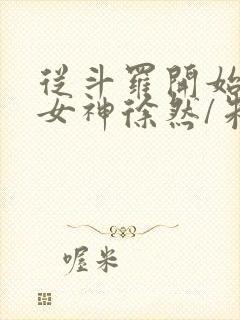 從斗羅開始
女神徐然/
喔米